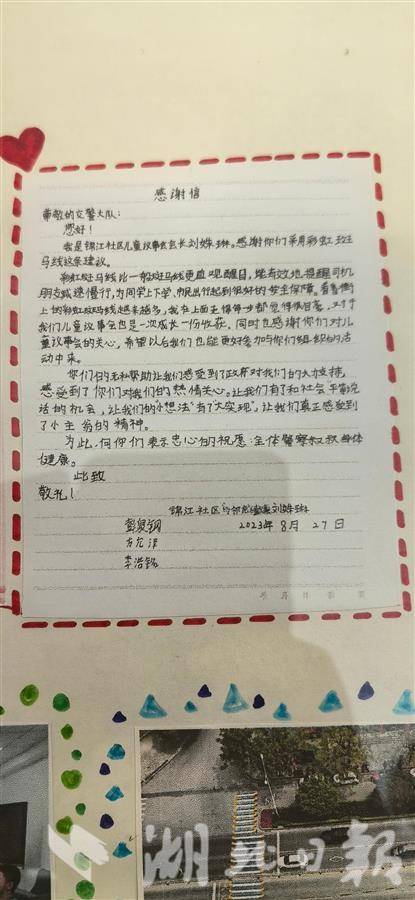 感谢信
尊敬的交警大队：
您好！
我是锦江社区儿童议事会会长刘姝琳。感谢你们采用彩虹斑
马线这条建议。
彩虹斑马线比一般斑马线更直观醒目，能有效地提醒司机
朋友减速慢行，为同学上下学、市民出行起到很好的安全保障。看着街
上的彩虹斑马线越来越多，我在上面走得每步都觉得很自豪，对于
我们儿童议事会也是一次成长一份收获，同时也感谢你们对儿
童议事会的关心，希望以后我们也能更好参加你们组织的活
动中来。
你们的无私帮助让我们感受到了政府对我们的大力支持，
感受到了你们对我们的热情关心。让我们有了和社会平等说
话的机会，让我们的“小想法”有了“大实现”。让我们真正感受到
了小主翁的精神。
为此，向你们表示忠心的祝愿：全体警察叔叔身体
健康。
此致
敬礼！
锦江社区 刘姝琳
2023年8月27日
李浩
湖北日報